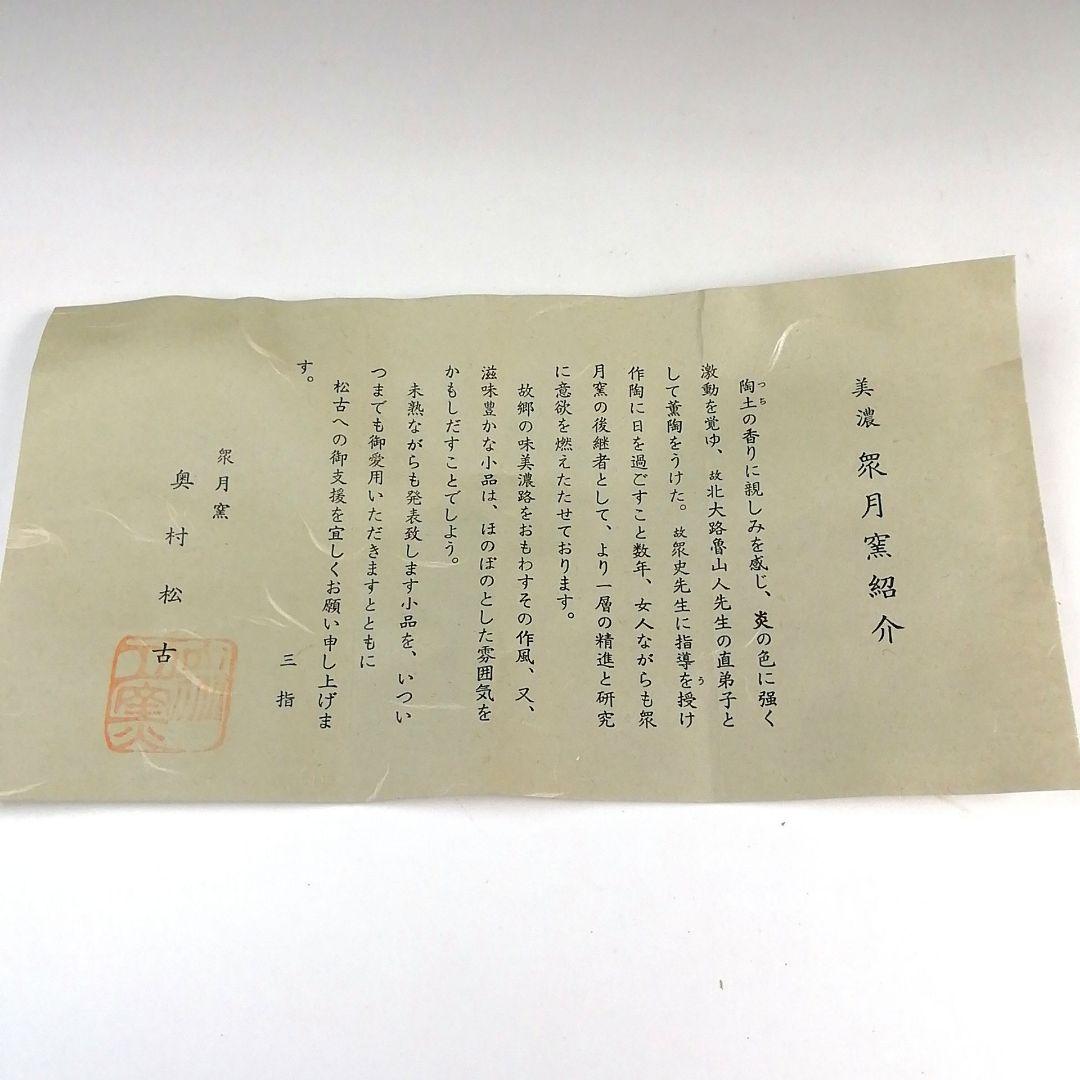 美濃 衆月窯紹介
陶土の香りに親しみを感じ、炎の色に強く
つち
激動を覚ゆ、故北大路魯山人先生の直弟子と
して薫陶をうけた。故衆史先生に指導を授け
う
作陶に日を過ごすこと数年、女人ながらも衆
月窯の後継者として、より一層の精進と研究
に意欲を燃えたたせております。
故郷の味美濃路をおもわすその作風、又、
滋味豊かな小品は、ほのぼのとした雰囲気を
かもしだすことでしよう。
未熟ながらも発表致します小品を、いつい
つまでも御愛用いただきますとともに
松古への御支援を宜しくお願い申し上げま
す。
三指
衆月窯
奥村松古